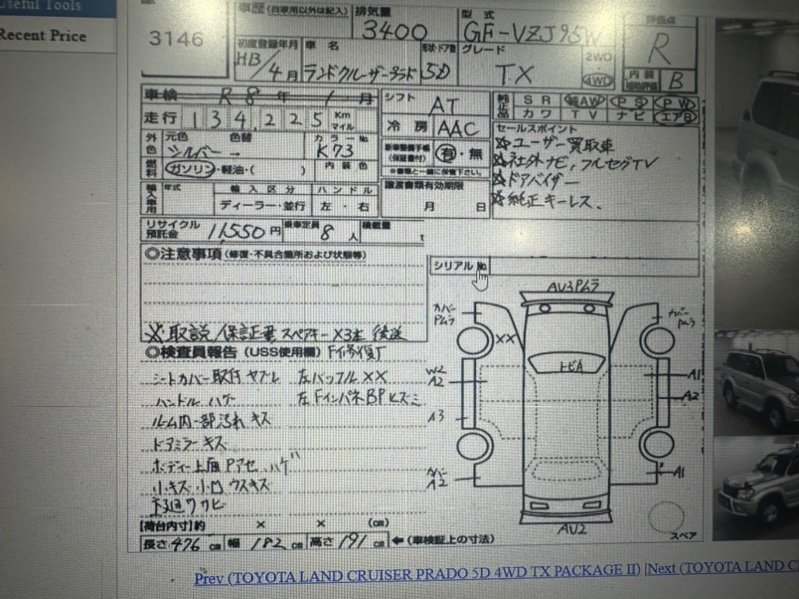 Useful Tools
Recent Price
3146
車歴 (自家用以外は記入)
排気量
3400
型式
GF-VZJ95W
評価点
R
初度登録年月
HB/4月
車名
ランドクルーザープラド
形状・ドア数
5D
グレード
TX
2WD
4WD
内装
補助評価
B
車検 R8年 1月
シフト
AT
純正品
SR AW PS PW
カワ TV ナビ エアB
走行 134,225 Km
マイル
冷房
AAC
セールスポイント
☆ユーザー買取車
☆社外ナビ,フルセグTV
☆ドアバイザー
☆純正キーレス.
外色
元色 色替
シルバー
カラーNo
K73
新車整備手帳
(保証書付)
有・無
※書類と一緒に保管下さい。
燃料
ガソリン・軽油・( )
内装色
輸入車用
年式
輸入区分
ハンドル
ディーラー・並行
左・右
譲渡書類有効期限
月 日
リサイクル
預託金
11,550円
乗車定員
8人
積載量
t
◎注意事項 (修復・不具合箇所および状態等)
シリアルNo
※取説/保証書 スペアキー×3本 後送
◎検査員報告 (USS使用欄)
シートカバー取付 ヤブレ
左バッフル××
ハンドル ハゲ
左FインパネBPヒズミ
ルーム内一部汚れ キズ
ドアミラーキズ
ボディー上面 Pアセ ハゲ
小キズ 小凹 ウスキズ
下廻りサビ
AU3 Pムラ
カバー
Pムラ
カバー
Pムラ
××
トビA
W2
A2
A1
A2
A3
カバー
A2
A1
AU2
スペア
【荷台内寸】約 × × (cm)
長さ 476 cm 幅 182 cm 高さ 191 cm ←(車検証上の寸法)
Prev (TOYOTA LAND CRUISER PRADO 5D 4WD TX PACKAGE II) |Next (TOYOTA LAND C